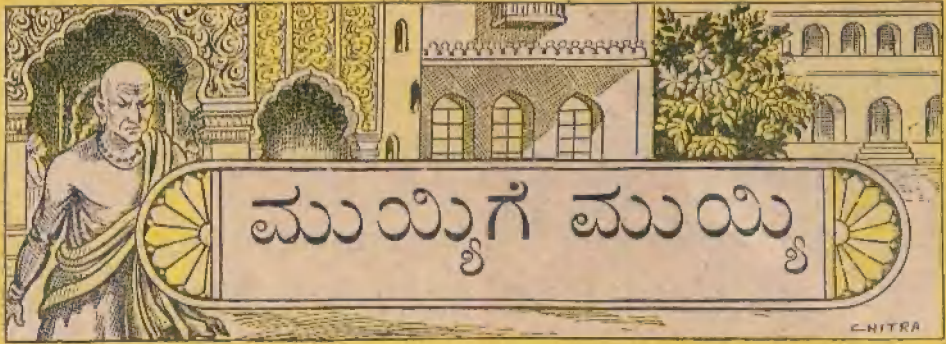 ಮುಯ್ಯಿಗೆ ಮುಯ್ಯಿ
CHITRA